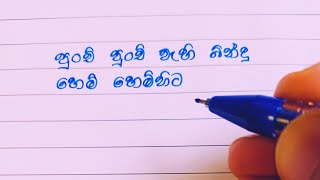 පුංචි පුංචි වැහි බින්දු
හෙමි හෙමිහිට